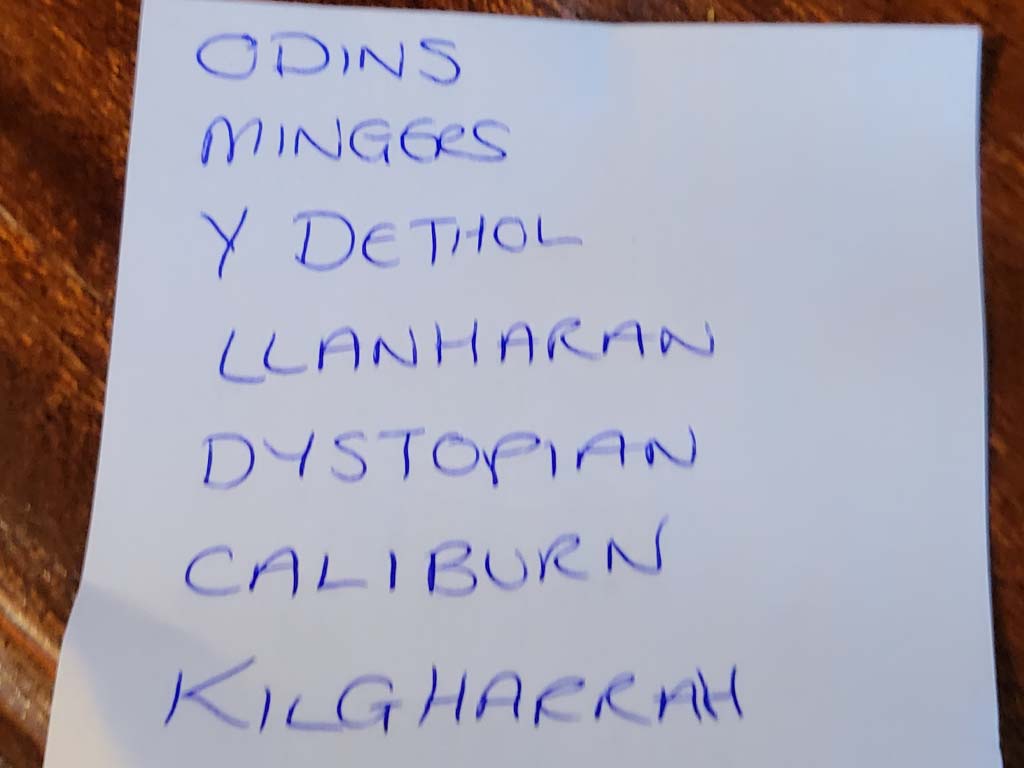 ODINS
MINGERS
Y DETHOL
LLANHARAN
DYSTOPIAN
CALIBURN
KILGHARRAH